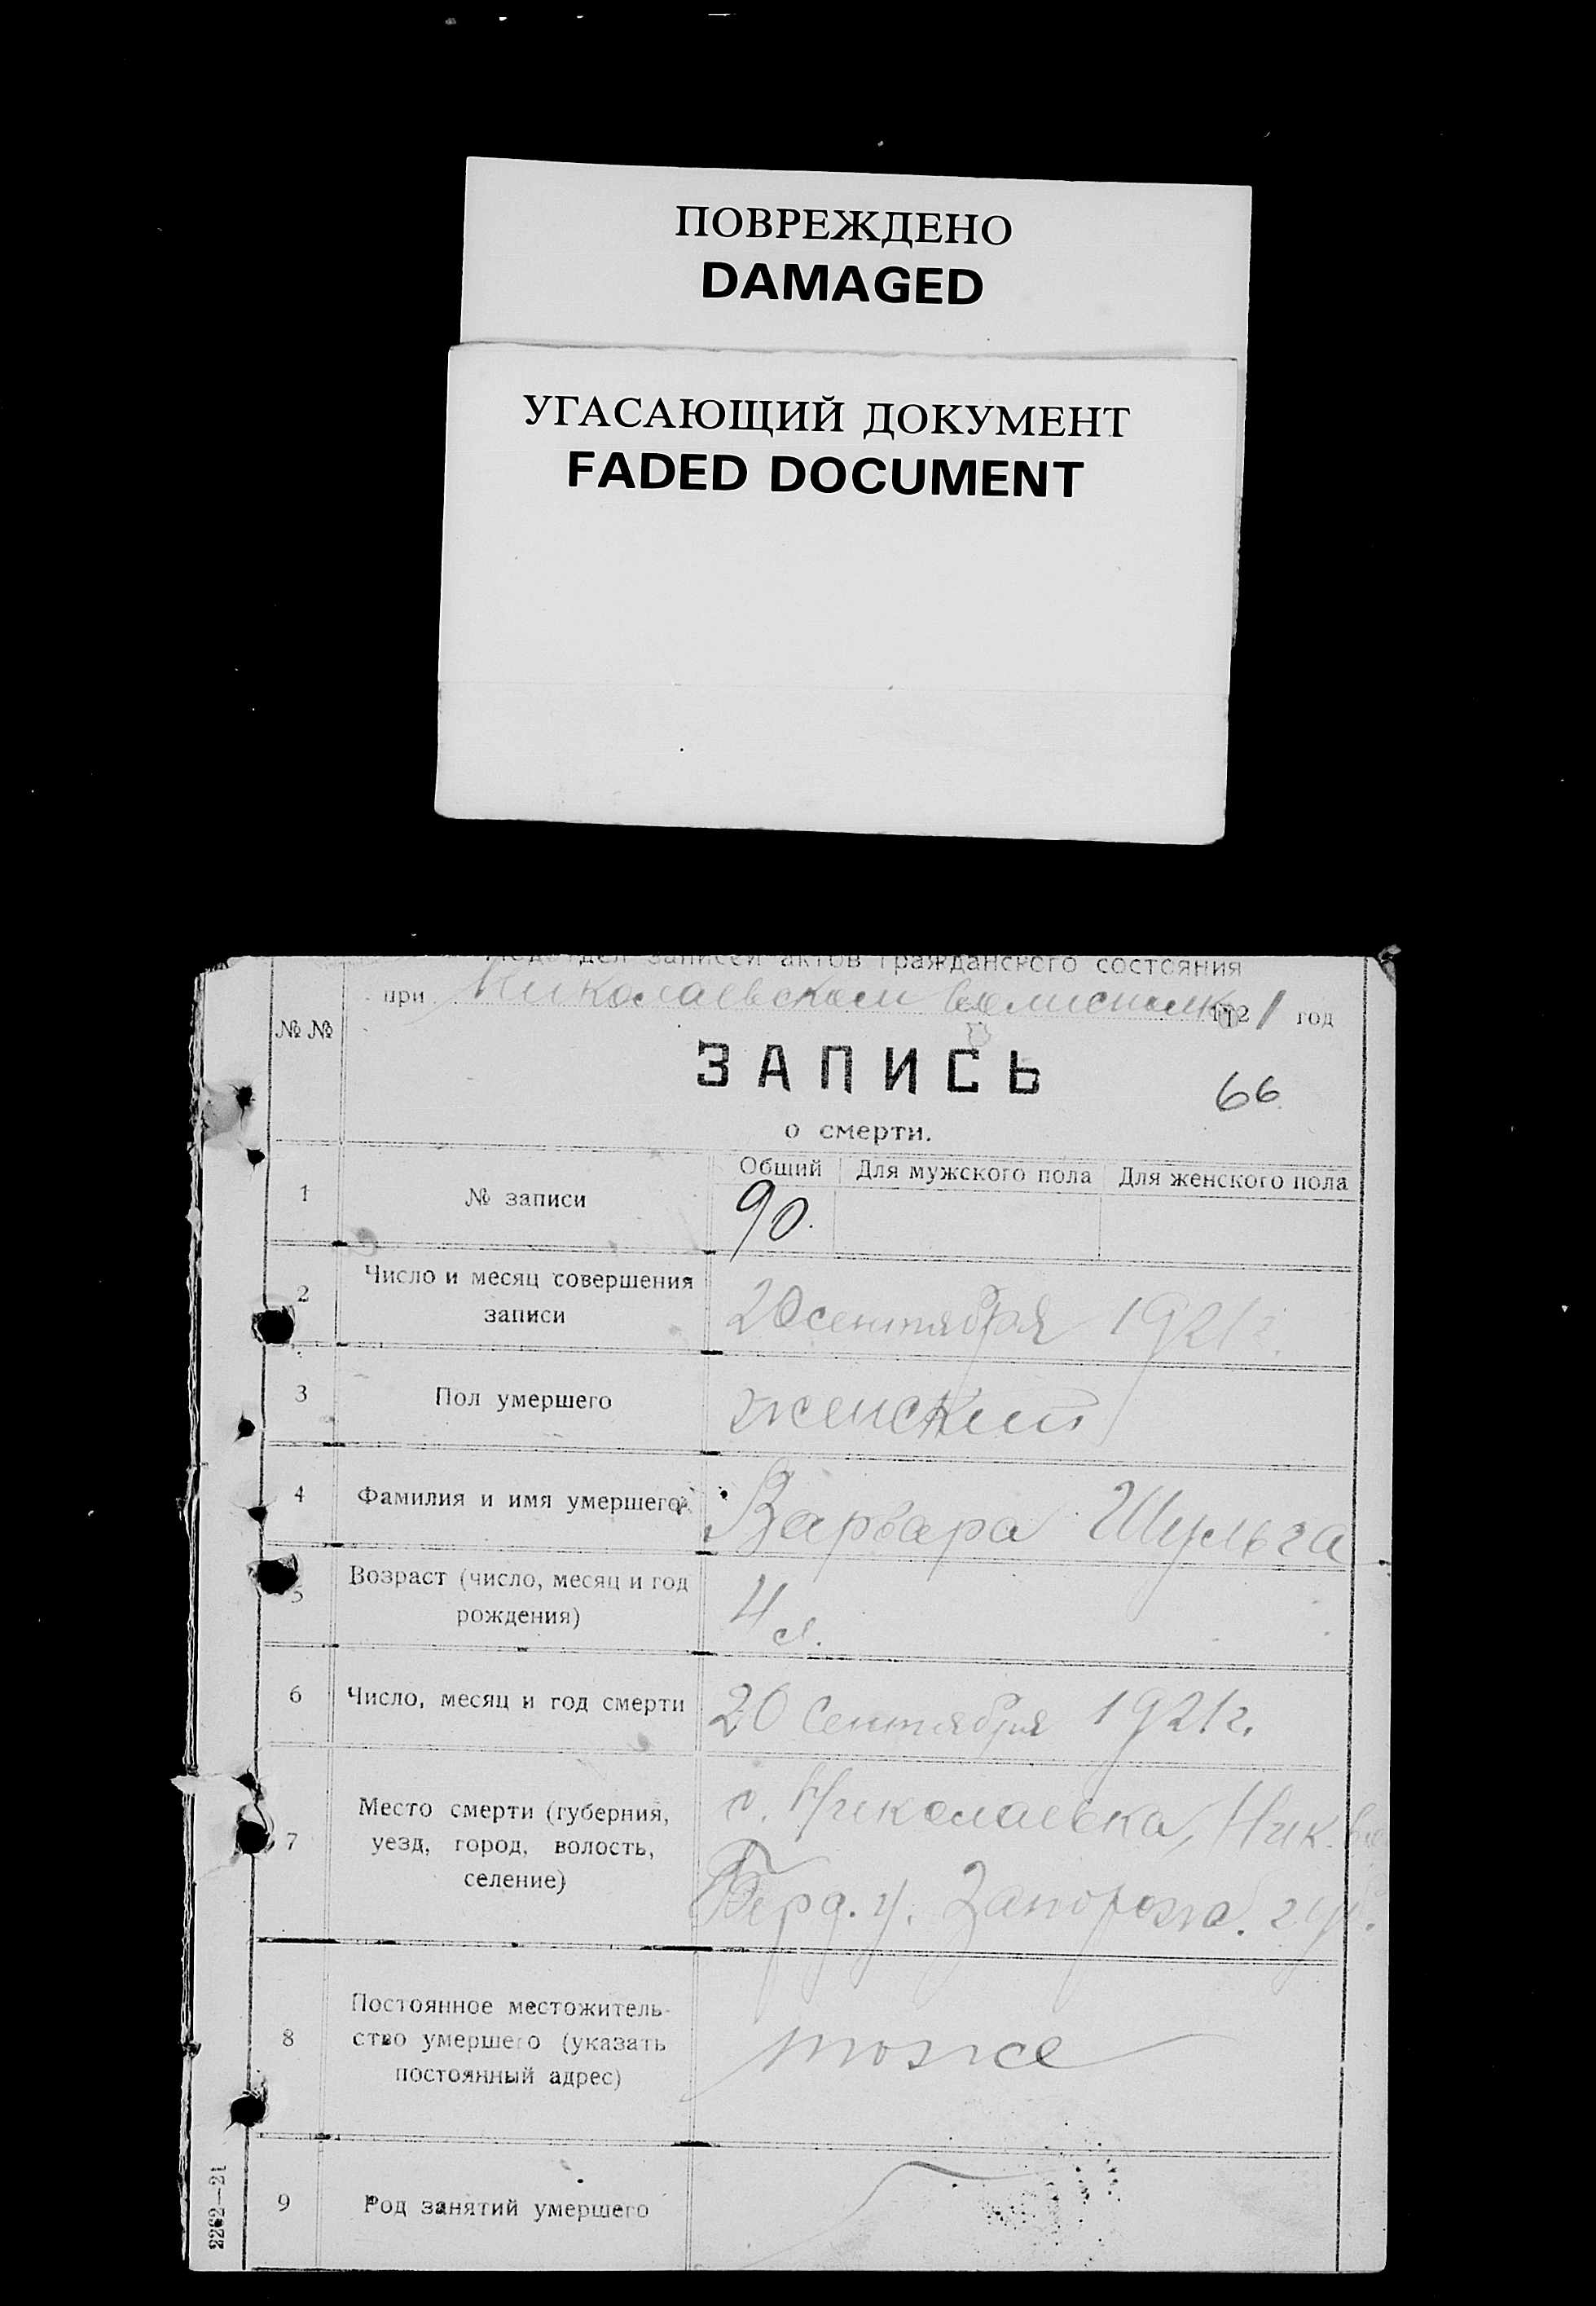 ПОВРЕЖДЕНО
DAMAGED
УГАСАЮЩИЙ ДОКУМЕНТ
FADED DOCUMENT
записей актов гражданского состояния
при Николаевском волисполк 1921 год
№ №
ЗАПИСЬ
66
о смерти.
Общий Для мужского пола Для женского пола
1 № записи 90.
2 Число и месяц совершения
записи
20 сентября 1921 г.
3 Пол умершего женский
4 Фамилия и имя умершего Варвара Шульга
5 Возраст (число, месяц и год
рождения)
4
6 Число, месяц и год смерти 20 Сентября 1921 г.
7 Место смерти (губерния,
уезд, город, волость,
селение)
с. Николаевка, Ник. во
Берд. у. Запорож. губ.
8 Постоянное местожитель-
ство умершего (указать
постоянный адрес)
тоже
9 Род занятий умершего
2262—21